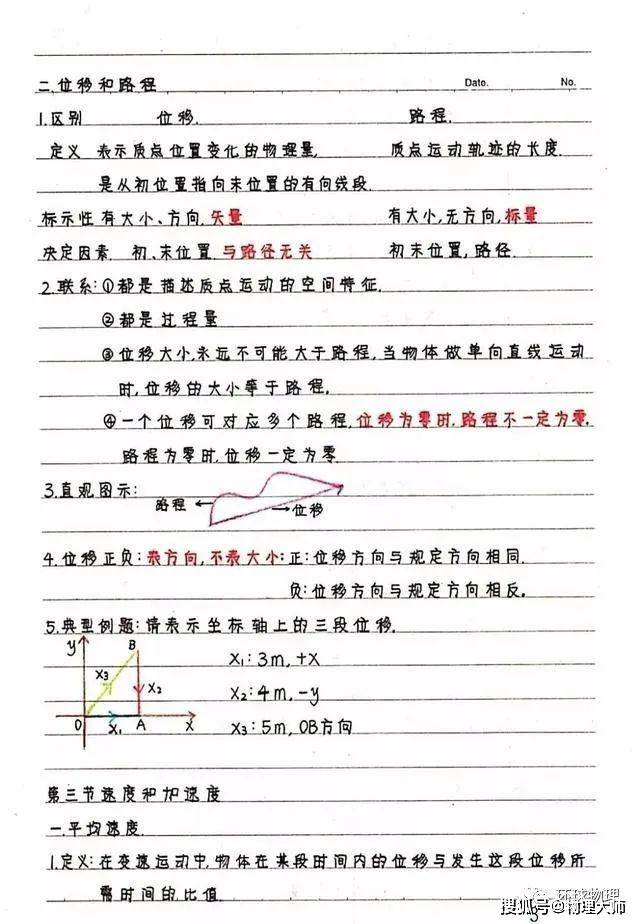 Date. No.
二.位移和路程
1.区别 位移. 路程.
定义 表示质点位置变化的物理量. 质点运动轨迹的长度.
是从初位置指向末位置的有向线段.
标示性 有大小、方向,矢量 有大小,无方向,标量
决定因素 初、末位置.与路径无关 初末位置,路径.
2.联系:①都是描述质点运动的空间特征.
②都是过程量
③位移大小,永远不可能大于路程,当物体做单向直线运动
时,位移的大小等于路程.
④一个位移可对应多个路程,位移为零时,路程不一定为零.
路程为零时,位移一定为零
3.直观图示:
路程 位移
4.位移正负:表方向,不表大小:正:位移方向与规定方向相同.
负:位移方向与规定方向相反.
5.典型例题:请表示坐标轴上的三段位移.
y B
X₃ X₂
O X₁ A X
X₁:3m,+X
X₂:4m,-y
X₃:5m,OB方向
第三节速度和加速度
一.平均速度.
1.定义:在变速运动中,物体在某段时间内的位移与发生这段位移所
需时间的.比值.
环球物理
搜狐号@物理大师